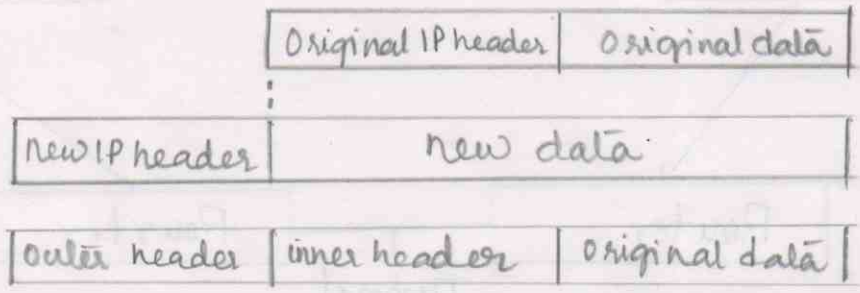 Original IP header Original data
new IP header new data
outer header inner header original data